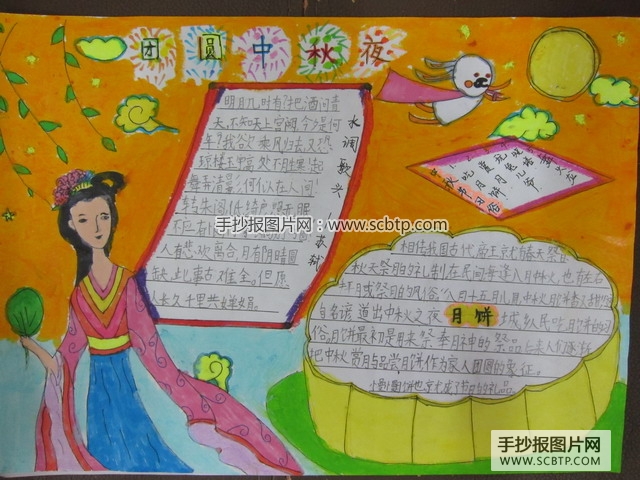 团圆中秋夜
水调歌
苏轼
明月几时有？把酒问青
天，不知天上宫阙，今夕是何
年？我欲乘风归去，又恐
琼楼玉宇，高处不胜寒！起
舞弄清影，何似在人间！
转朱阁，低绮户，照无眠
不应有
人有悲欢离合，月有阴晴圆
缺，此事古难全。但愿
人长久，千里共婵娟。
手抄报图片网：www.scbtp.com
相传我国古代，帝王就有春天祭日
秋天祭月的礼制在民间每逢八月中秋，也有左右
拜月或祭月的风俗"八月十五月儿圆，中秋月饼香又甜"
名谚道出中秋之夜 月饼 城乡人民吃月饼的习
俗，月饼最初是用来祭奉月神的祭品，后来人们逐渐
把中秋赏月与品尝月饼作为家人团圆的象征。
手抄报图片网
WWW.SCBTP.COM